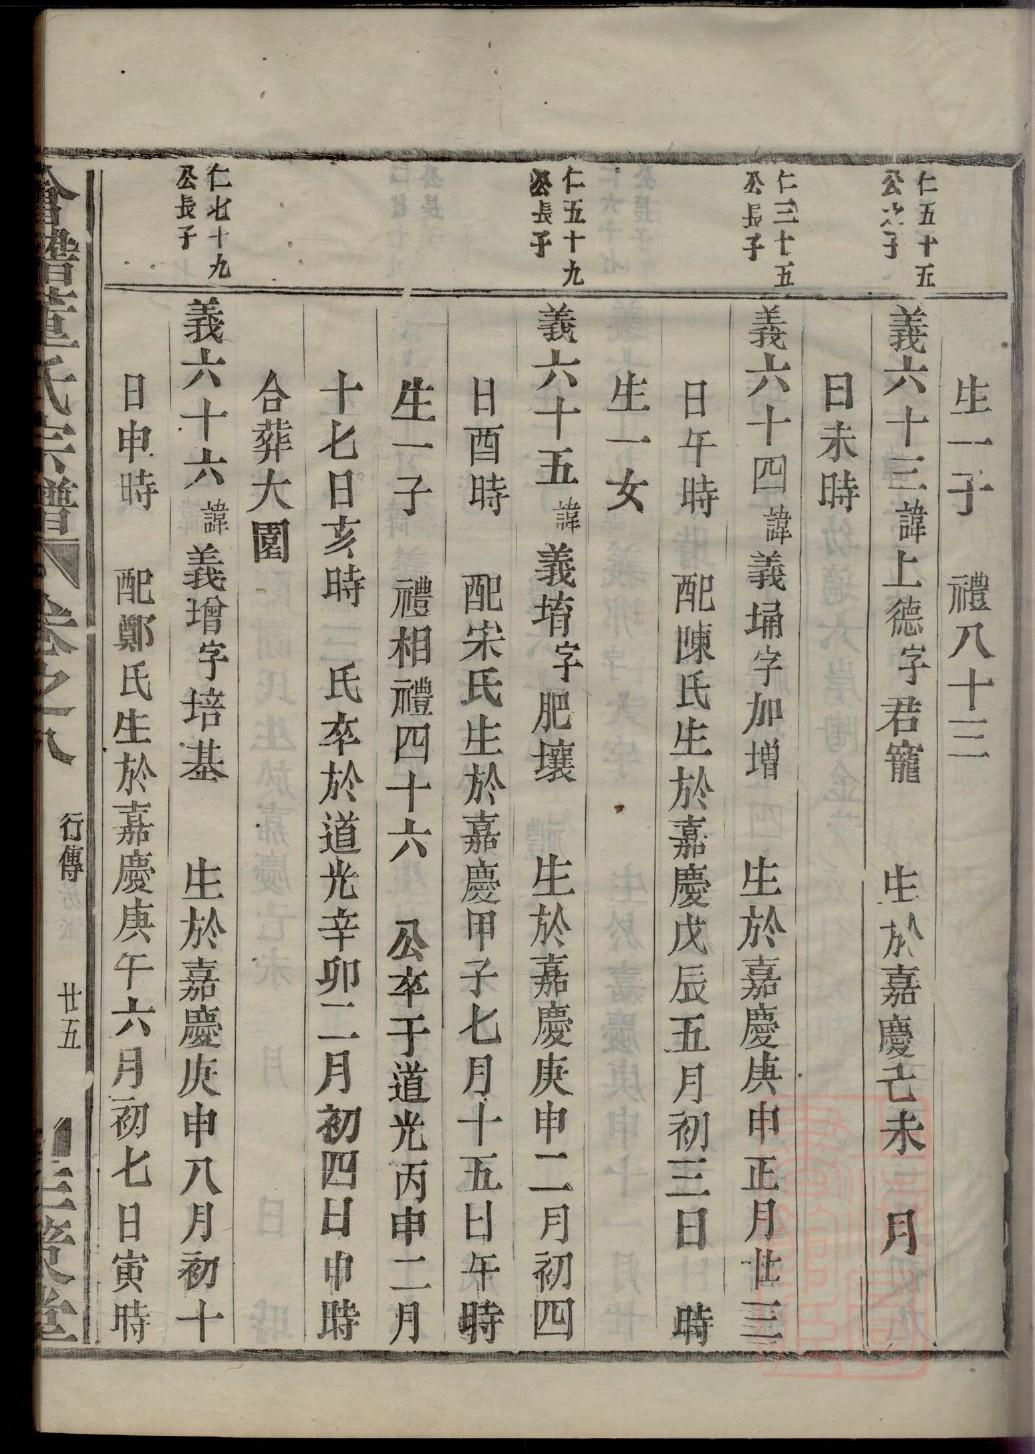 生一子　禮八十三
仁五十五
公之子
義六十三諱上德字君寵　生於嘉慶己未　月
日未時
仁三十五
公長子
義六十四諱義埇字加增　生於嘉慶庚申正月廿三
日午時　配陳氏生於嘉慶戊辰五月初三日　時
生一女
仁五十九
公長子
義六十五諱義堉字肥壤　生於嘉慶庚申二月初四
日酉時　配宋氏生於嘉慶甲子七月十五日午時
生一子　禮相禮四十六　公卒于道光丙申二月
十七日亥時　氏卒於道光辛卯二月初四日申時
合葬大園
仁七十九
公長子
義六十六諱義增字培基　生於嘉慶庚申八月初十
日申時　配鄭氏生於嘉慶庚午六月初七日寅時
董氏宗譜　卷之八　行傳　廿五